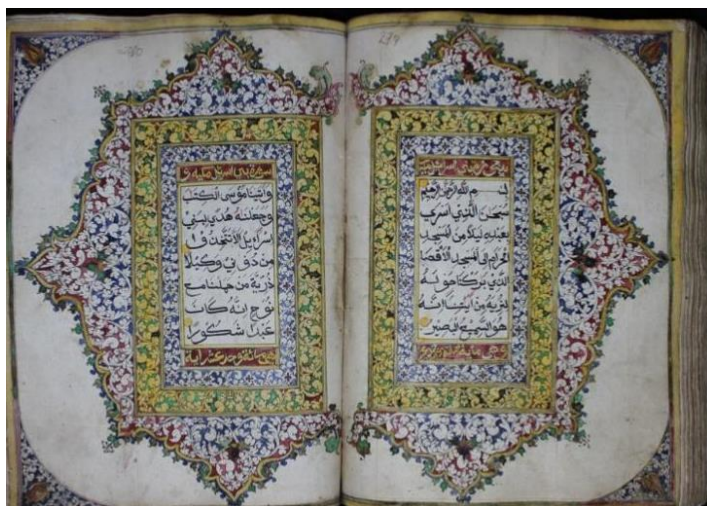 بسم الله الرحمن الرحيم
سبحان الذي اسرى
بعبده ليلا من المسجد
الحرام الى المسجد الاقصا
الذي بركنا حوله
لنريه من ايتنا انه
هو السميع البصير
واتينا موسى الكتب
وجعلنه هدى لبني
اسرايل الا تتخذوا
من دوني وكيلا
ذرية من حملنا مع
نوح انه كان
عبدا شكورا